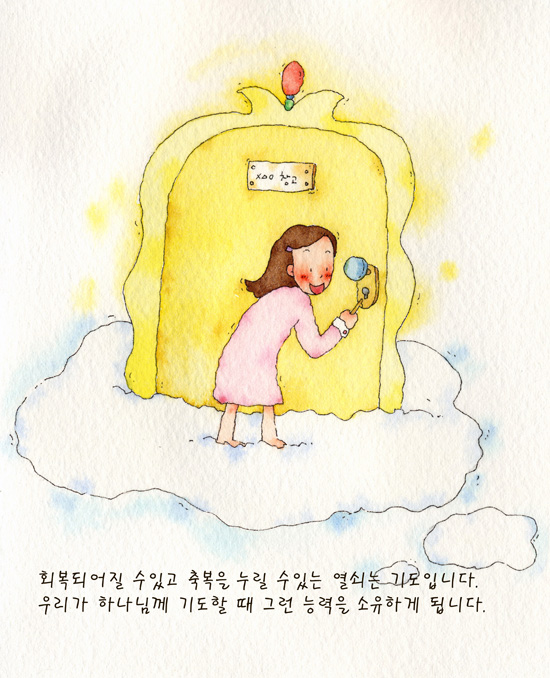 xoo 창고
회복되어질 수있고 축복을 누릴 수있는 열쇠는 기도입니다.
우리가 하나님께 기도할 때 그런 능력을 소유하게 됩니다.